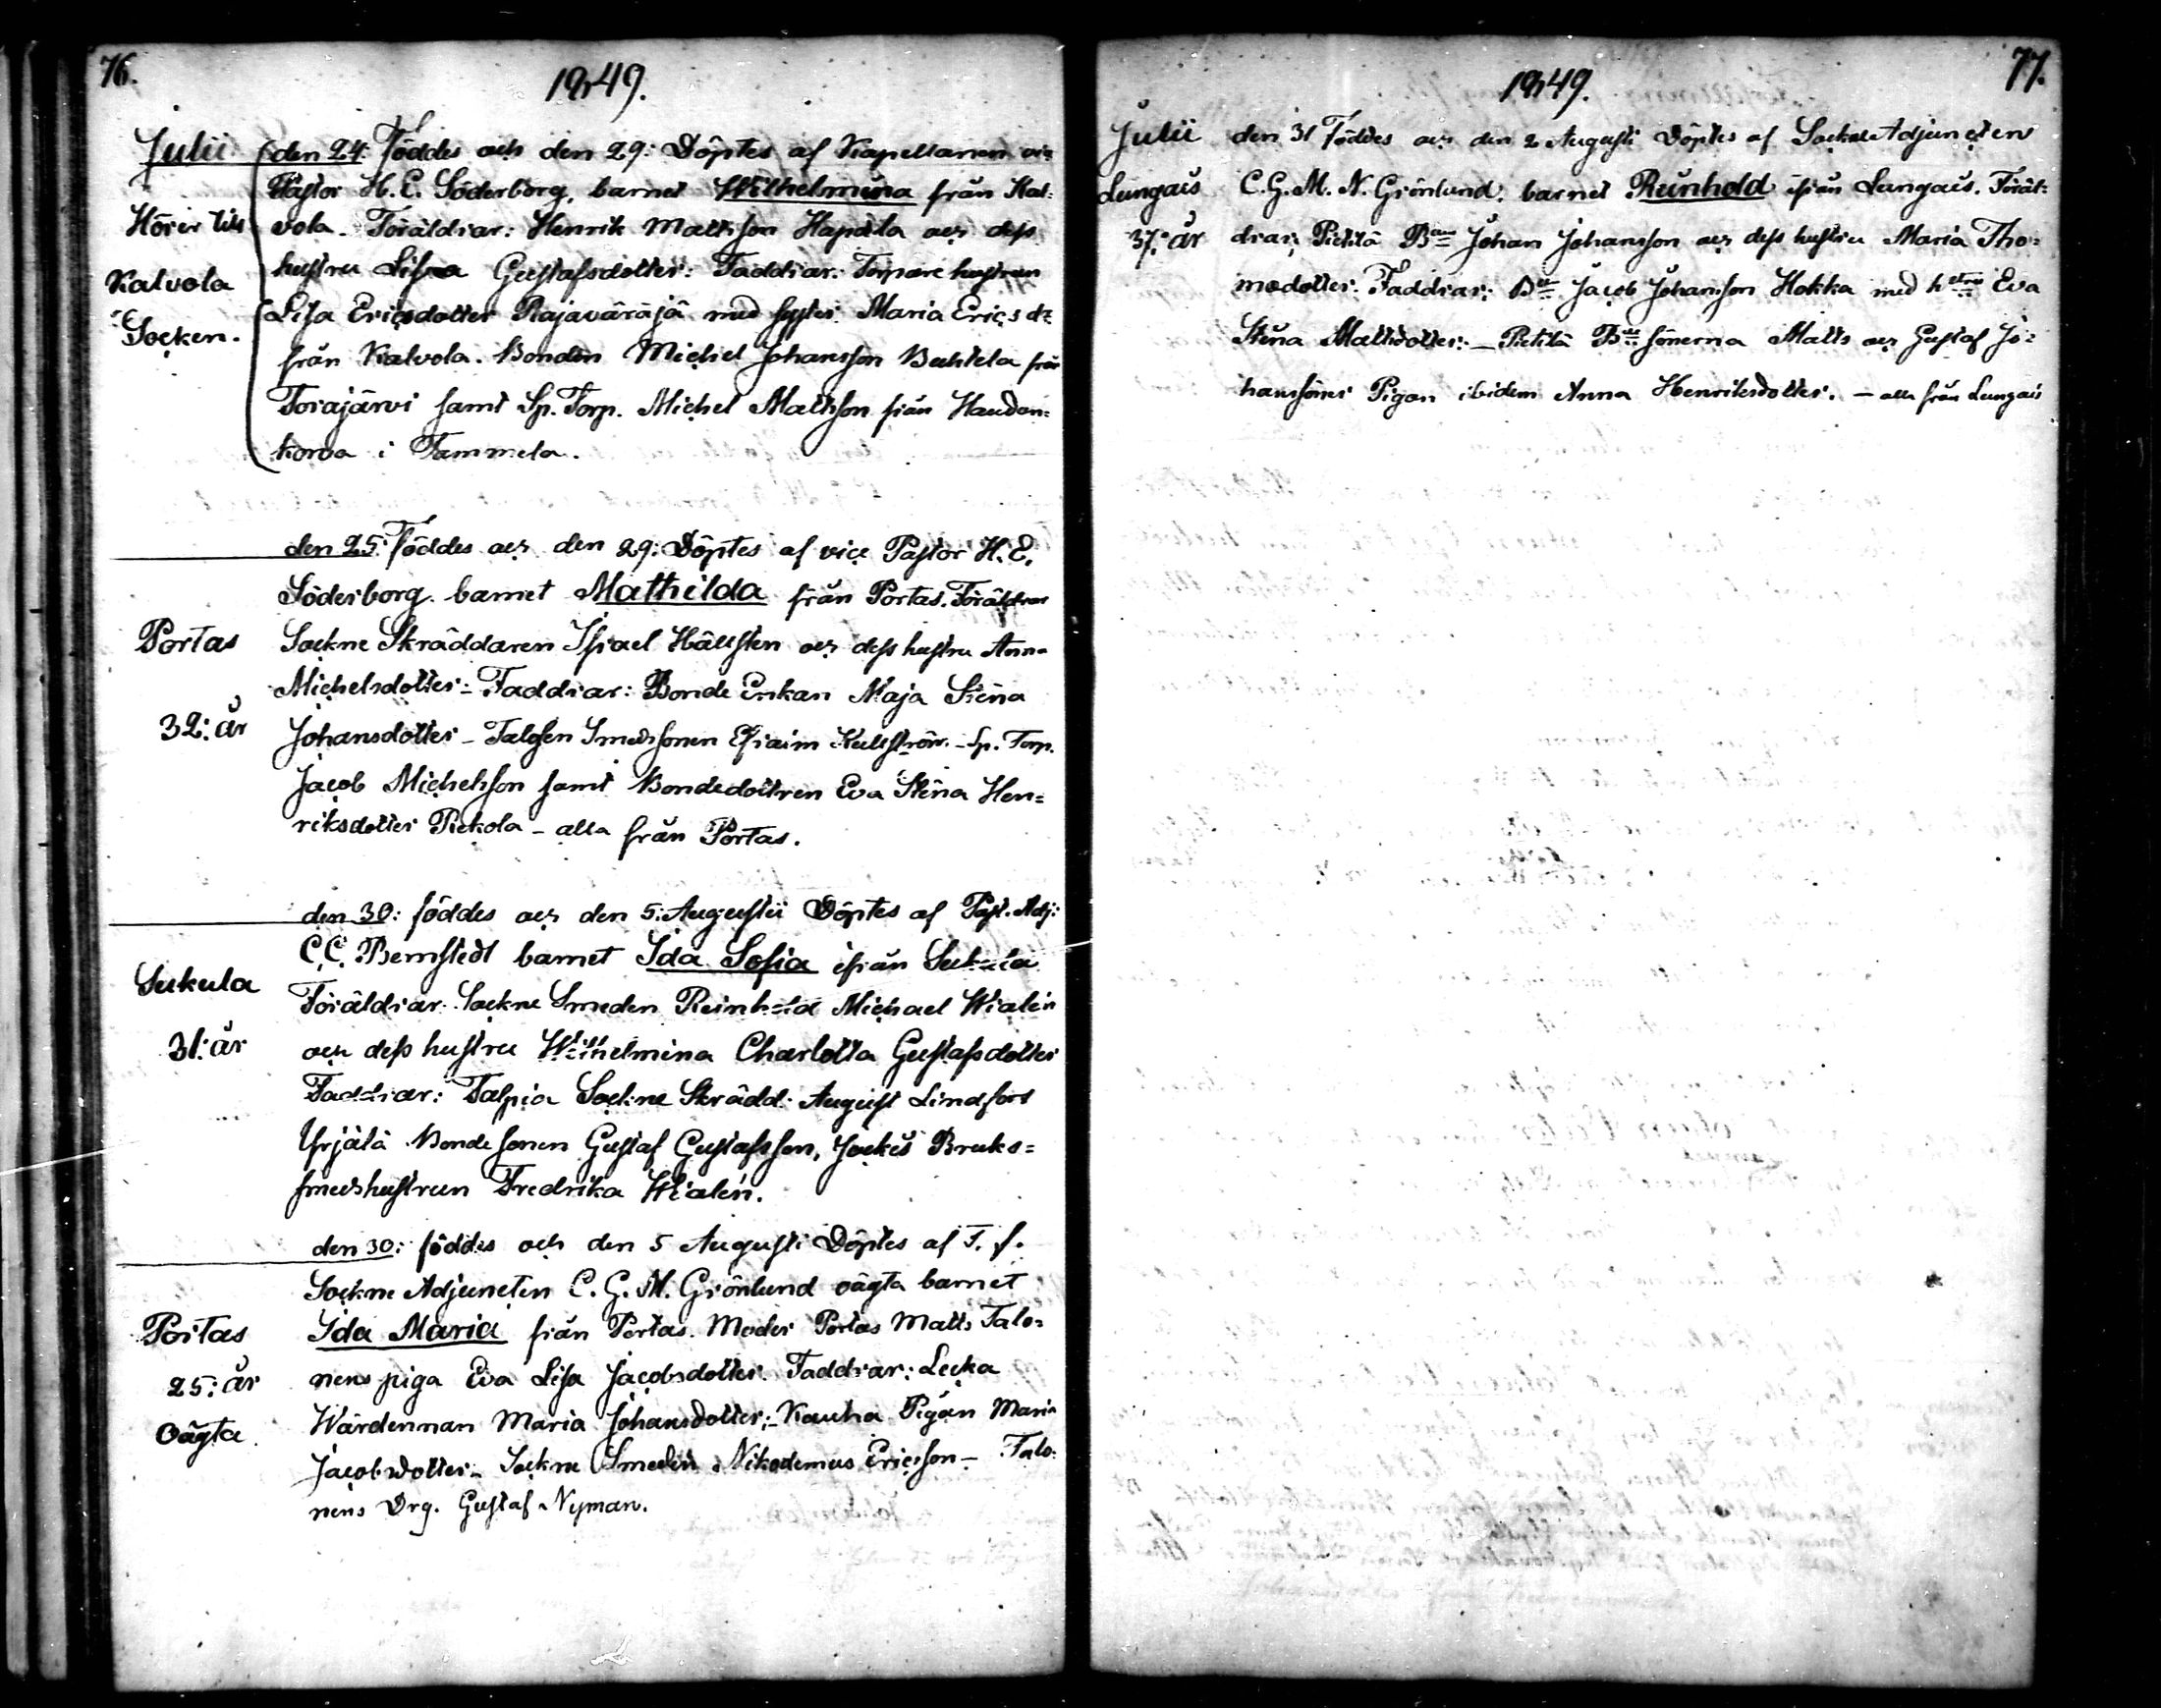 76.
1849.
Julii
Hörer till
Kalvola
Socken.
den 24: Föddes och den 29: Döptes af Kapellanen vic
Pastor H. E. Söderborg, barnet Wilhelmina från Kal:
vola. Föräldrar: Henrik Mattsson Hapala och dess
hustru Lisa Gustafsdotter: Faddrar: Torpare hustrun
Lisa Ericsdotter Rajaväräjä med syster Maria Erics dr
från Kalvola. Bonden Michel Johansson Buhtela från
Torajärvi samt Sp. Torp. Michel Mattsson från Haudan:
korva i Tammela.
Portas
32: år
den 25: Föddes och den 29: Döptes af vice Pastor H. E.
Söderborg barnet Mathilda från Portas. Föräldrar
Sockne Skräddaren Israel Hällsten och dess hustru Anna
Michelsdotter - Faddrar: Bonde Enkan Maja Stina
Johansdotter - Talosen Smedssonen Efraim Kullström - Sp. Torp.
Jacob Michelsson samt Bondedottren Eva Stina Hen=
riksdotter Piekola - alla från Portas.
Sukula
31: år
den 30: föddes och den 5: Augustii Döptes af Past. Adj:
C. C. Bernstedt barnet Ida Sofia ifrån Sukula
Föräldrar Sockne Smeden Reinhold Michael Wialén
och dess hustru Wilhelmina Charlotta Gustafsdotter
Faddrar: Talpia Sockne Skrädd: August Lindfors
Yrjälä Bonde sonen Gustaf Gustafsson, Jockis Bruks=
smedshustrun Fredrika Wialén.
Portas
25: år
Oägta
den 30: föddes och den 5 Augusti Döptes af T. f.
Sockne Adjuncten C. G. M. Grönlund oägta barnet
Ida Maria från Portas. Moder Portas Matts Talo=
nens piga Eva Lisa Jacobsdotter. Faddrar: Lecka
Wärdennan Maria Johansdotter; - Kauha Pigan Maria
Jacobsdotter - Sockne Smeden Nikodemus Ericsson - Talo:
nens Drg. Gustaf Nyman.
77.
1849.
Julii
Lungais
37: år
den 31 Föddes och den 2 Augusti Döptes af Sockne Adjuncten
C. G. M. N. Grönlund. barnet Reinhold ifrån Lungais. Föräl:
drar; Pietilä Bden Johan Johansson och dess hustru Maria Tho=
madotter. Faddrar; Bde Jacob Johansson Hokka med hstru Eva
Stina Mattsdotter: - Pietilä Bde sönerna Matts och Gustaf Jo=
hanssöner Pigan ibidem Anna Henriksdotter. - alla från Lungais